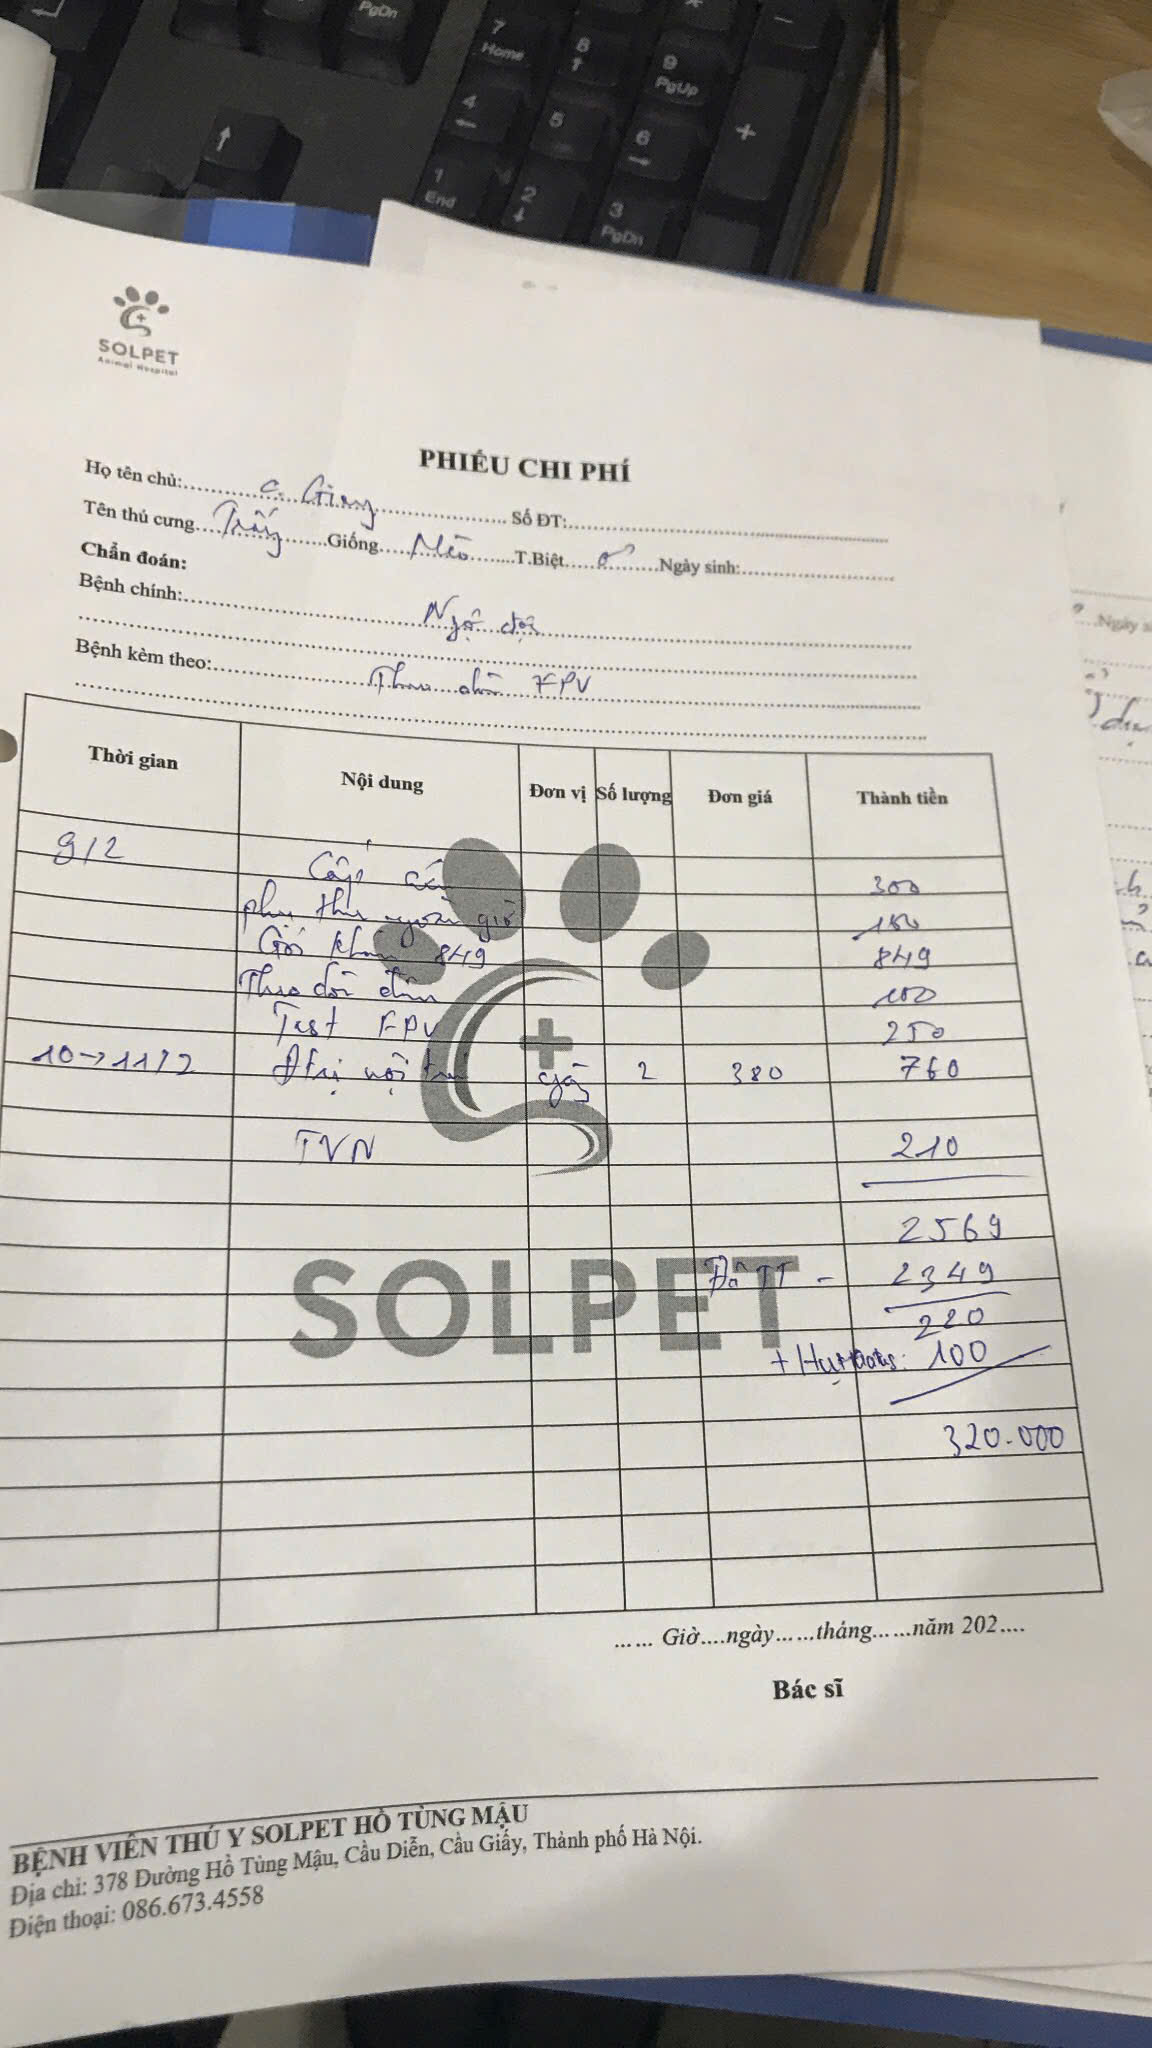 PgDn
7
Home
8
9
PgUp
4
5
6
+
1
End
2
3
PgDn
SOLPET
Animal Hospital
PHIẾU CHI PHÍ
Họ tên chủ: c. Giang Số ĐT:
Tên thú cưng Trắng Giống Mèo T.Biệt ♂ Ngày sinh:
Chẩn đoán:
Bệnh chính: Ngộ độc
Bệnh kèm theo: Theo dõi FPV
Thời gian Nội dung Đơn vị Số lượng Đơn giá Thành tiền
9/2 Cấp cứu 300
phụ thu ngoài giờ 100
Gói khám 849 849
Theo dõi đêm 100
Test FPV 250
10→11/2 Đtrị nội trú ngày 2 380 760
TVN 210
2569
Đã TT - 2349
220
+ 100
320.000
SOLPET
...... Giờ....ngày......tháng......năm 202....
Bác sĩ
BỆNH VIỆN THÚ Y SOLPET HỒ TÙNG MẬU
Địa chỉ: 378 Đường Hồ Tùng Mậu, Cầu Diễn, Cầu Giấy, Thành phố Hà Nội.
Điện thoại: 086.673.4558